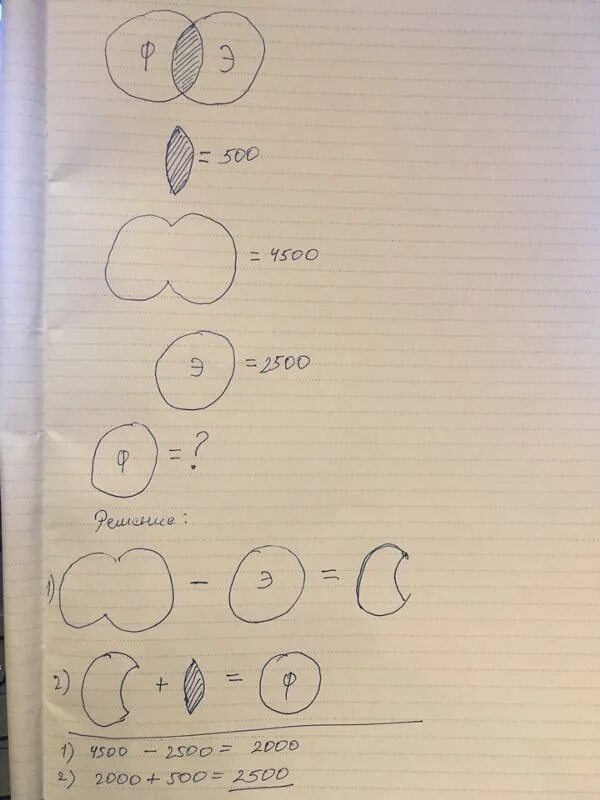 Ф Э
= 500
= 4500
Э = 2500
Ф = ?
Решение:
1) - Э =
2) + = Ф
1) 4500 - 2500 = 2000
2) 2000 + 500 = 2500